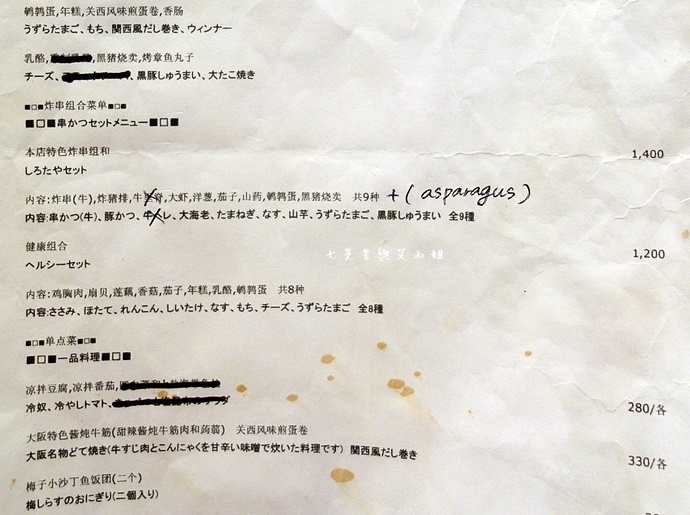 鹌鹑蛋,年糕,关西风味煎蛋卷,香肠
うずらたまご、もち、関西風だし巻き、ウィンナー
乳酪,黑猪烧卖,烤章鱼丸子
チーズ、黒豚しゅうまい、大たこ焼き
■□■炸串组合菜单■□■
■□■串かつセットメニュー■□■
本店特色炸串组和 1,400
しろたやセット
内容:炸串(牛),炸猪排,牛脊,大虾,洋葱,茄子,山药,鹌鹑蛋,黑猪烧卖 共9种 +(asparagus)
内容:串かつ(牛)、豚かつ、レ、大海老、たまねぎ、なす、山芋、うずらたまご、黒豚しゅうまい 全9種
健康组合 1,200
ヘルシーセット
内容:鸡胸肉,扇贝,莲藕,香菇,茄子,年糕,乳酪,鹌鹑蛋 共8种
内容:ささみ、ほたて、れんこん、しいたけ、なす、もち、チーズ、うずらたまご 全8種
■□■单点菜■□■
■□■一品料理■□■
凉拌豆腐,凉拌番茄,
冷奴、冷やしトマト、 280/各
大阪特色酱炖牛筋(甜辣酱炖牛筋肉和蒟蒻) 关西风味煎蛋卷
大阪名物どて焼き(牛すじ肉とこんにゃくを甘辛い味噌で炊いた料理です) 関西風だし巻き 330/各
梅子小沙丁鱼饭团(二个)
梅しらすのおにぎり(二個入り)